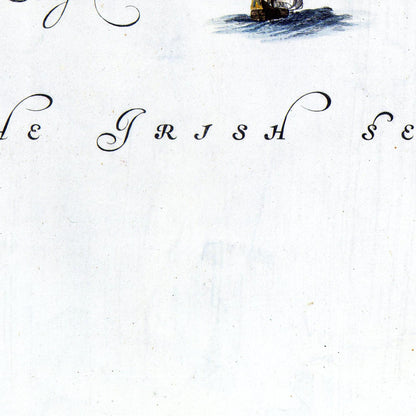 HE IRISH SE